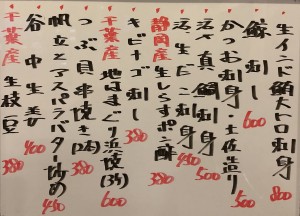 生インド鮪大トロ刺身 800
鯨刺し 600
かつお刺身・土佐造り 500
活〆真鯛刺身 500
活〆生だこ刺身 450
静岡産 生しらすポン酢 380
キビナゴ刺し 380
千葉産 地はまぐり浜焼(3ケ) 600
つぶ貝串焼き(2本) 380
帆立とアスパラバター炒め 450
谷中生姜 400
千葉産 生枝豆 380